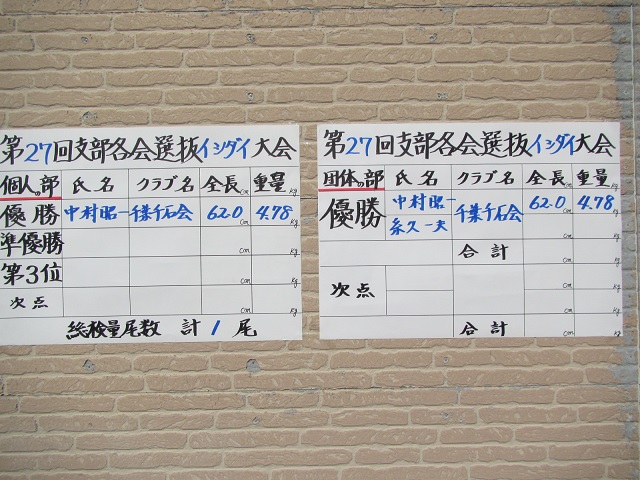 第27回支部各会選抜イシダイ大会
個人の部 氏名 クラブ名 全長 重量
優勝 中村昭一 千葉千石会 62.0cm 4.78kg
準優勝 cm kg
第3位 cm kg
次点 cm kg
総検量尾数 計 1 尾
第27回支部各会選抜イシダイ大会
団体の部 氏名 クラブ名 全長 重量
優勝 中村昭一 千葉千石会 62.0cm 4.78kg
糸久一夫
合計 cm kg
次点 cm kg
合計 cm kg